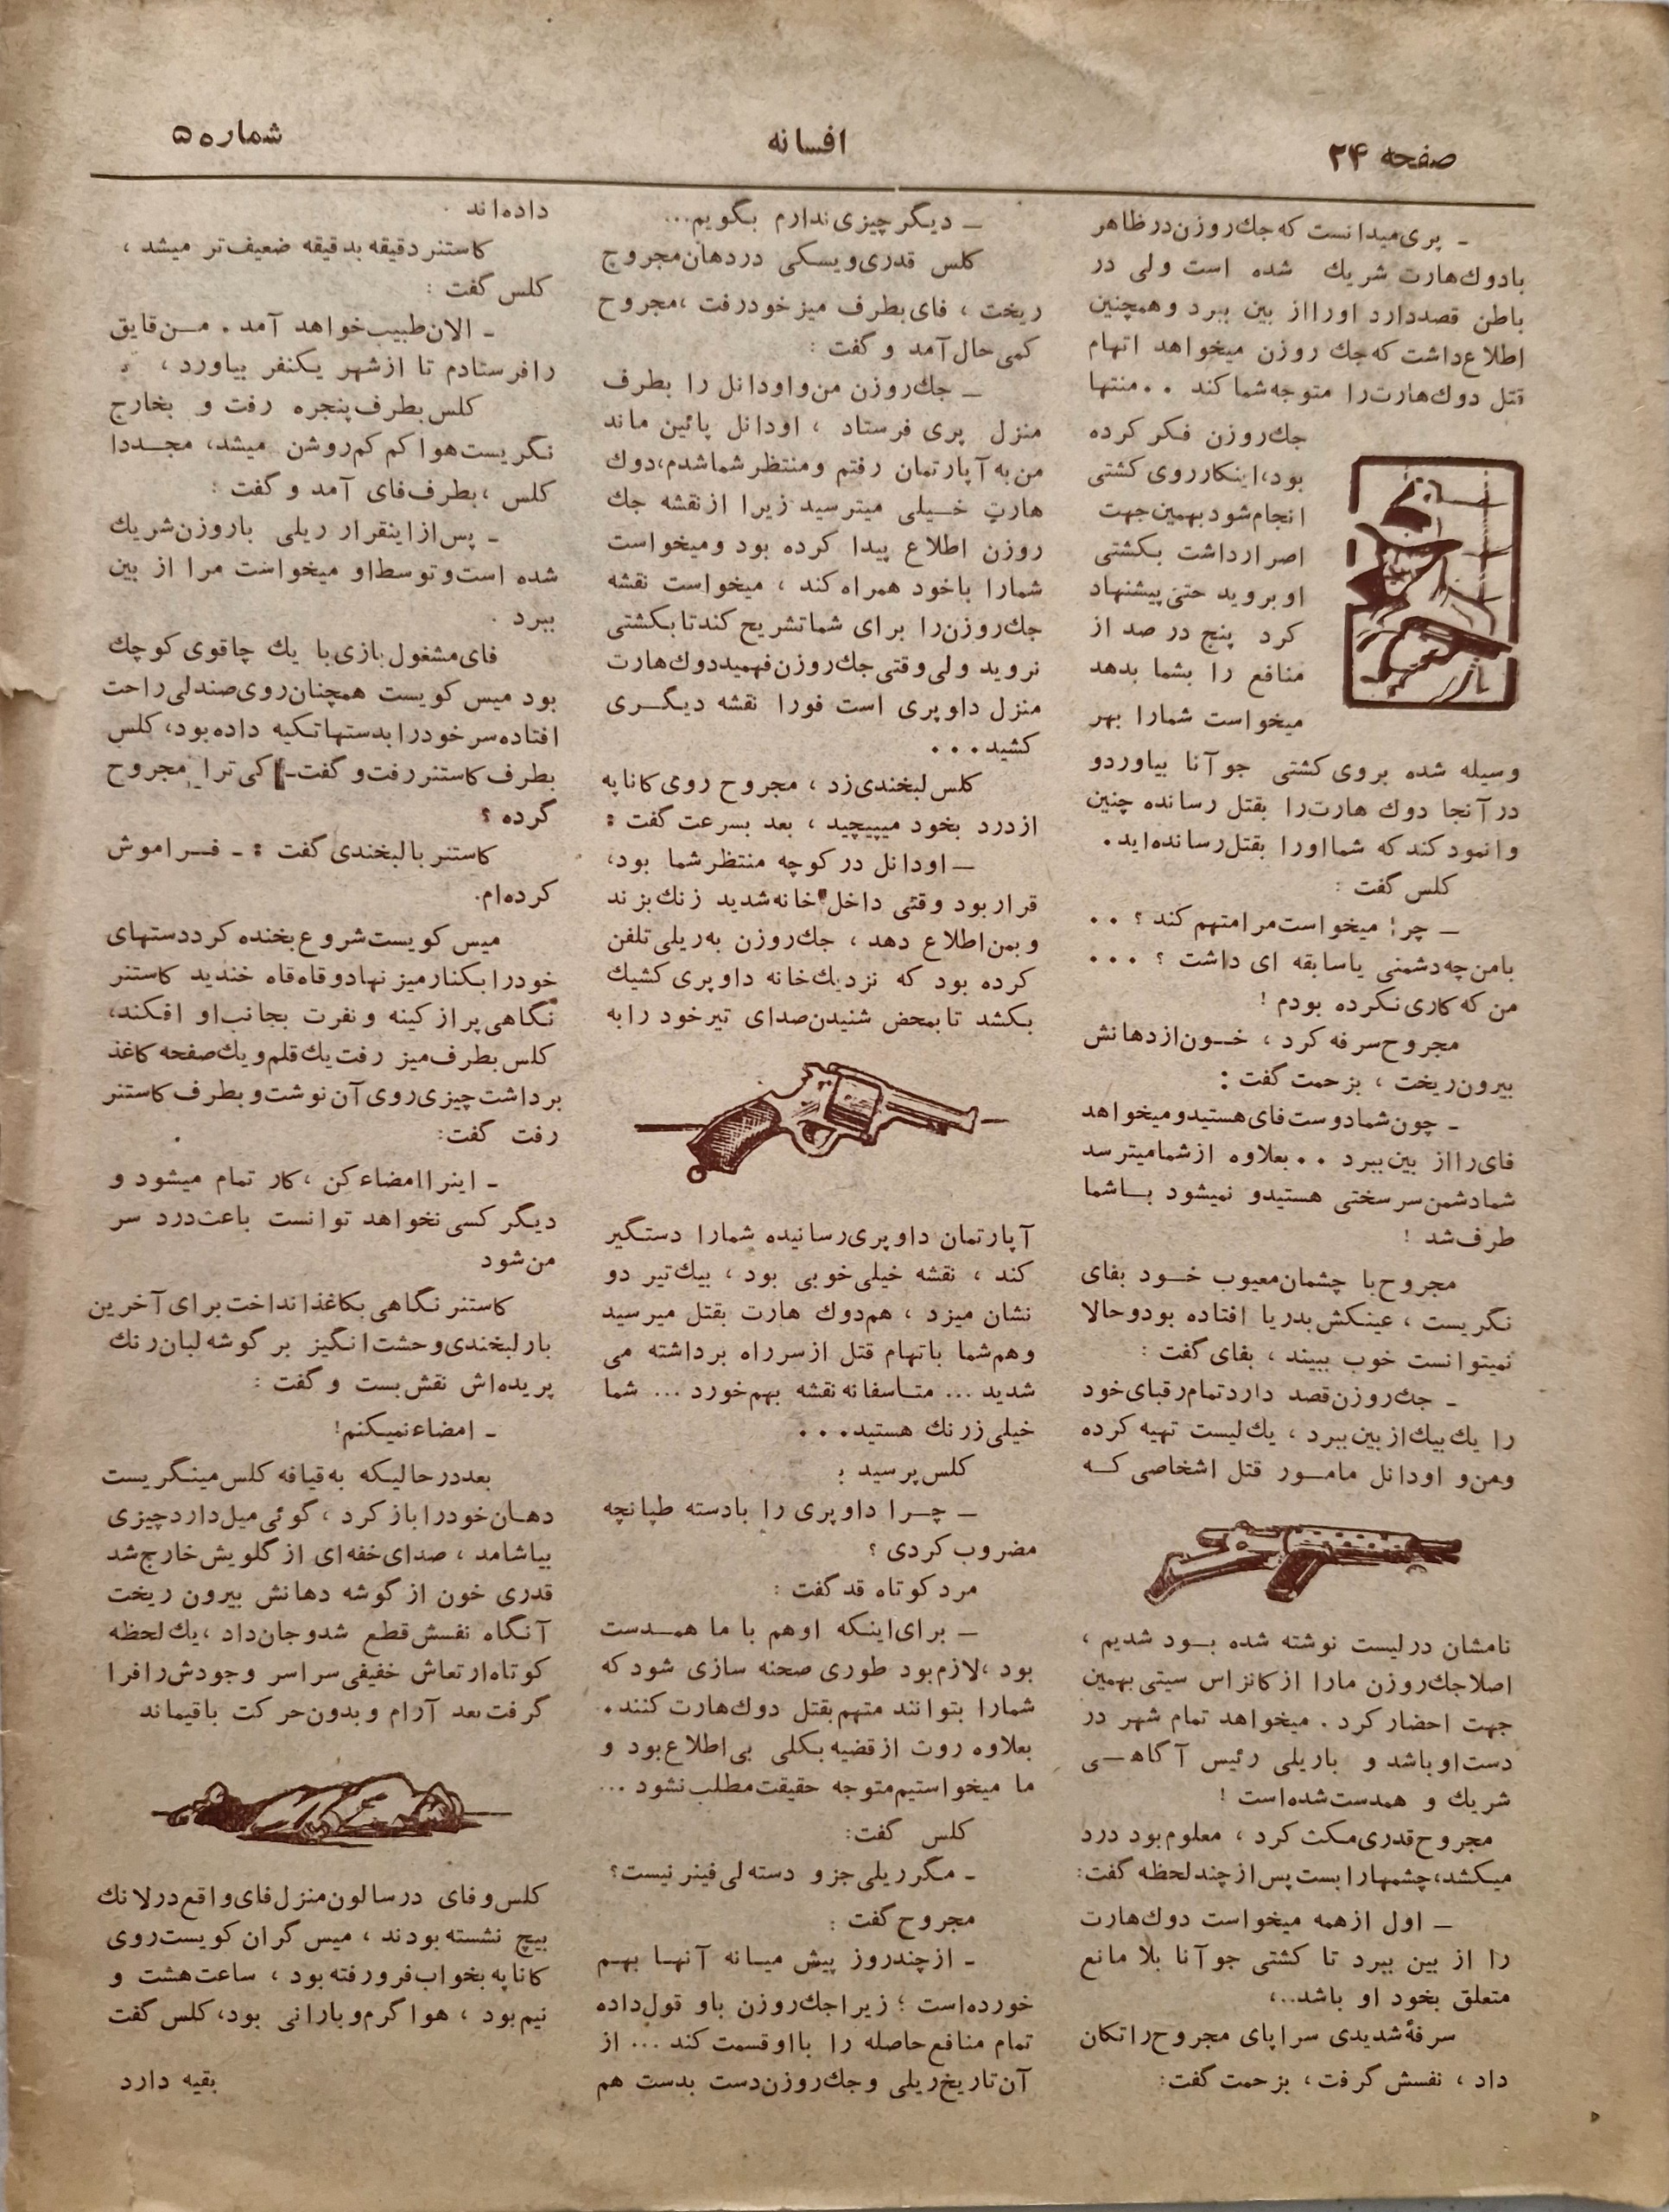 صفحه ۲۴
افسانه
شماره ۵
ـ پری میدانست که جك روزن در ظاهر
با دوك هارت شریك شده است ولی در
باطن قصد دارد او را از بین ببرد و همچنین
اطلاع داشت که جك روزن میخواهد اتهام
قتل دوك هارت را متوجه شما کند . . منتها
جك روزن فکر کرده
بود، اینکار روی کشتی
انجام شود بهمین جهت
اصرار داشت بکشتی
او بروید حتی پیشنهاد
کرد پنج در صد از
منافع را بشما بدهد
میخواست شما را بهر
وسیله شده بروی کشتی جو آنا بیاورد و
در آنجا دوك هارت را بقتل رسانده چنین
وانمود کند که شما او را بقتل رسانده اید.
کلس گفت :
ـ چرا میخواست مرا متهم کند ؟ . .
با من چه دشمنی یا سابقه ای داشت ؟ . . .
من که کاری نکرده بودم !
مجروح سرفه کرد ، خـون از دهانش
بیرون ریخت ، بزحمت گفت :
ـ چون شما دوست فای هستید و میخواهد
فای را از بین ببرد . . بعلاوه از شما میترسد
شما دشمن سرسختی هستید و نمیشود بـا شما
طرف شد !
مجروح با چشمان معیوب خـود بفای
نگریست ، عینکش بدریا افتاده بود و حالا
نمیتوانست خوب ببیند ، بفای گفت :
ـ جك روزن قصد دارد تمام رقبای خود
را یك بیك از بین ببرد ، یك لیست تهیه کرده
و من و اودانل مامـور قتل اشخاصی کـه
نامشان در لیست نوشته شده بـود شدیم ،
اصلا جك روزن ما را از کانزاس سیتی بهمین
جهت احضار کرد . میخواهد تمام شهر در
دست او باشد و با ریلی رئیس آگاهـی
شریك و همدست شده است !
مجروح قدری مکث کرد ، معلوم بود درد
میکشد، چشمها را بست پس از چند لحظه گفت:
ـ اول از همه میخواست دوك هارت
را از بین ببرد تا کشتی جو آنا بلا مانع
متعلق بخود او باشد..،
سرفهٔ شدیدی سراپای مجروح را تکان
داد ، نفسش گرفت ، بزحمت گفت:
ـ دیگر چیزی ندارم بگویم...
کلس قدری ویسکی در دهان مجروح
ریخت ، فای بطرف میز خود رفت ، مجروح
کمی حال آمد و گفت :
ـ جك روزن من و اودانل را بطرف
منزل پری فرستاد ، اودانل پائین ماند
من به آپارتمان رفتم و منتظر شما شدم، دوك
هارت خـیلی میترسید زیرا از نقشه جك
روزن اطلاع پیدا کرده بود و میخواست
شما را با خود همراه کند ، میخواست نقشه
جك روزن را برای شما تشریح کند تا بکشتی
نروید ولی وقتی جك روزن فهمید دوك هارت
منزل داوپری است فورا نقشه دیگـری
کشید . . .
کلس لبخندی زد ، مجروح روی کاناپه
از درد بخود میپیچید ، بعد بسرعت گفت :
ـ اودانل در کوچه منتظر شما بود،
قرار بود وقتی داخل خانه شدید زنك بزند
و بمن اطلاع دهد ، جك روزن به ریلی تلفن
کرده بود که نزدیك خانه داوپری کشیك
بکشد تا بمحض شنیدن صدای تیر خود را به
آپارتمان داوپری رسانیده شما را دستگیر
کند ، نقشه خیلی خوبی بود ، بیك تیر دو
نشان میزد ، هم دوك هارت بقتل میرسید
و هم شما باتهام قتل از سر راه برداشته می
شدید ... متـاسفانه نقشه بهم خورد ... شما
خیلی زرنك هستید . . .
کلس پرسید :
ـ چـرا داوپری را با دسته طپانچه
مضروب کردی ؟
مرد کوتاه قد گفت :
ـ برای اینکه او هم با ما همـدست
بود ، لازم بود طوری صحنه سازی شود که
شما را بتوانند متهم بقتل دوك هارت کنند.
بعلاوه روت از قضیه بکلی بی اطلاع بود و
ما میخواستیم متوجه حقیقت مطلب نشود ...
کلس گفت:
ـ مگر ریلی جزو دسته لی فینر نیست؟
مجروح گفت :
ـ از چند روز پیش میـانه آنهـا بهـم
خورده است ؛ زیرا جك روزن باو قول داده
تمام منافع حاصله را با او قسمت کند ... از
آن تاریخ ریلی و جك روزن دست بدست هم
داده اند .
کاستنر دقیقه بدقیقه ضعیف تر میشد ،
کلس گفت :
ـ الان طبیب خواهد آمد . مـن قایق
را فرستادم تا از شهر یکنفر بیاورد ،
کلس بطرف پنجره رفت و بخارج
نگریست هوا کم کم روشن میشد، مجـددا
کلس ، بطرف فای آمد و گفت :
ـ پس از اینقرار ریلی با روزن شریك
شده است و توسط او میخواست مرا از بین
ببرد .
فای مشغول بازی با یك چاقوی کوچك
بود میس کویست همچنان روی صندلی راحت
افتاده سر خود را بدستها تکیه داده بود، کلس
بطرف کاستنر رفت و گفت- کی ترا مجروح
کرده ؟
کاستنر با لبخندی گفت : ـ فـراموش
کرده ام.
میس کویست شروع بخنده کرد دستهای
خود را بکنار میز نهاد و قاه قاه خندید کاستنر
نگاهی پر از کینه و نفرت بجانب او افکند،
کلس بطرف میز رفت یك قلم و یك صفحه کاغذ
برداشت چیزی روی آن نوشت و بطرف کاستنر
رفت گفت:
ـ اینرا امضاء کن ، کار تمام میشود و
دیگر کسی نخواهد توانست باعث درد سر
من شود
کاستنر نگاهی بکاغذ انداخت برای آخرین
بار لبخندی وحشت انگیز بر گوشه لبان رنك
پریده اش نقش بست و گفت :
ـ امضاء نمیکنم!
بعد در حالیکه به قیافه کلس مینگریست
دهـان خود را باز کرد ، گوئی میل دارد چیزی
بیاشامد ، صدای خفه ای از گلویش خارج شد
قدری خون از گوشه دهانش بیرون ریخت
آنگاه نفسش قطع شد و جان داد ، یك لحظه
کوتاه ارتعاش خفیفی سراسر وجودش را فرا
گرفت بعد آرام و بدون حرکت باقیماند
کلس و فای در سالون منزل فای واقع در لانك
بیچ نشسته بودند ، میس گران کویست روی
کاناپه بخواب فرو رفته بود ، ساعت هشت و
نیم بود ، هوا گرم و بارانی بود، کلس گفت
بقیه دارد